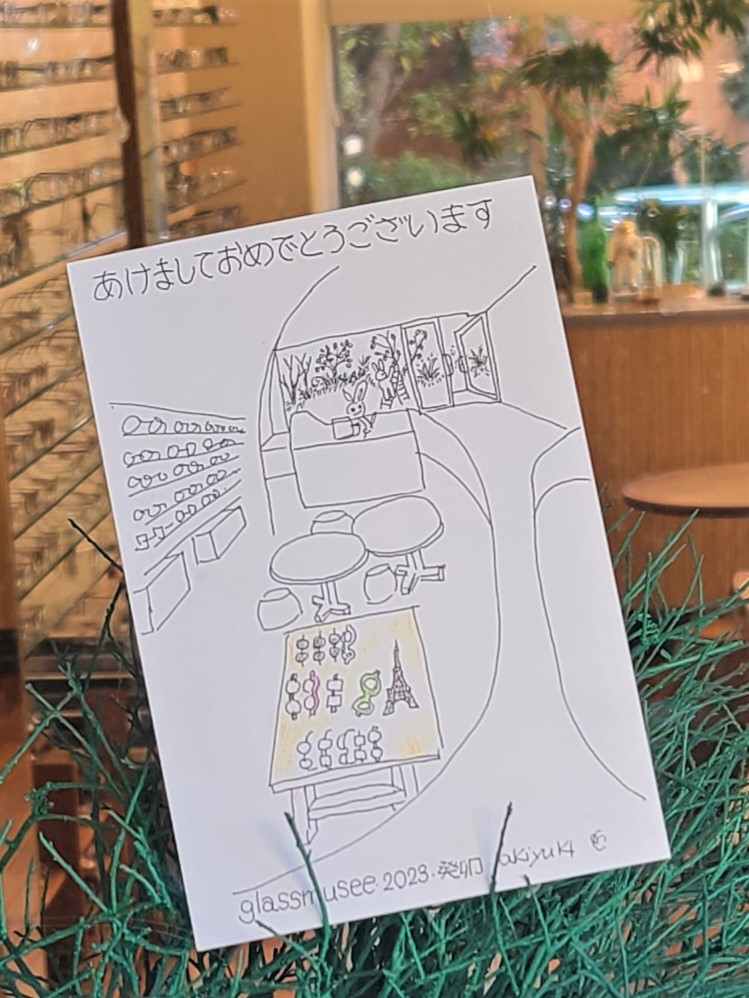 あけましておめでとうございます
glassmusee・2023・癸卯 akiyuki